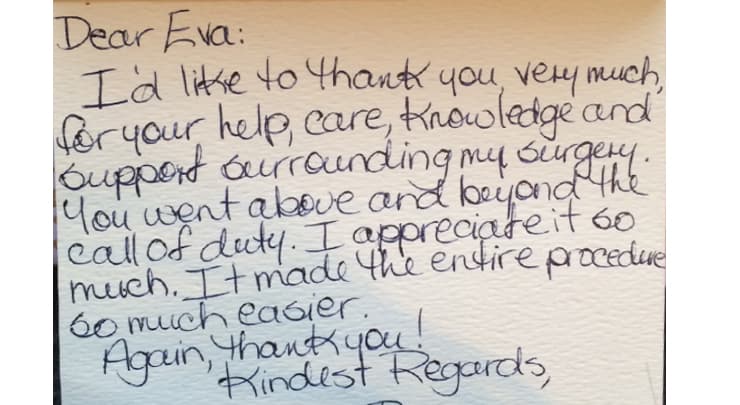 Dear Eva:
I'd like to thank you very much,
for your help, care, knowledge and
support surrounding my surgery.
You went above and beyond the
call of duty. I appreciate it so
much. It made the entire procedure
so much easier.
Again, thank you!
Kindest Regards,